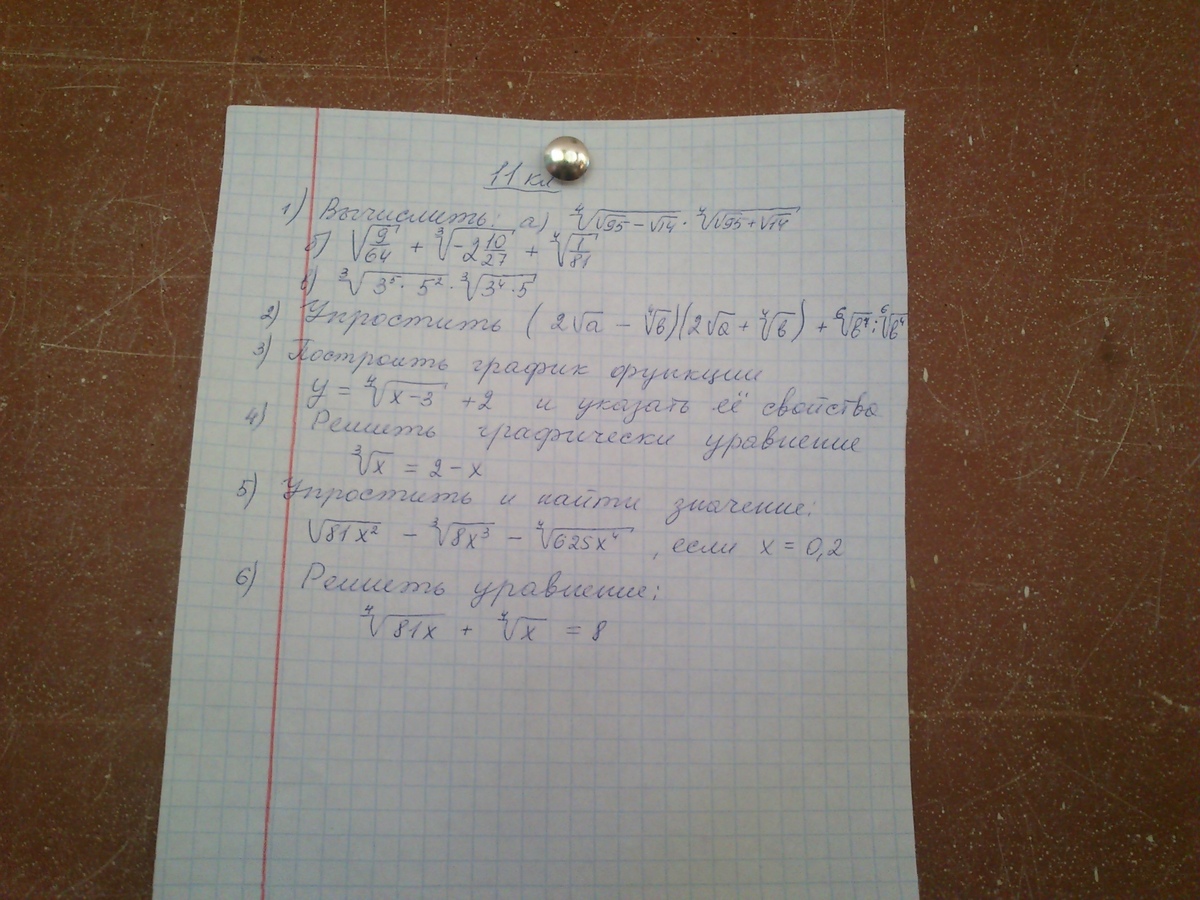 11 кл
1) Вычислить: а) ⁴√(√95 − √14) · ⁴√(√95 + √14)
б) √(9/64) + ³√(−2 10/27) + ⁴√(1/81)
в) ³√(3⁵ · 5²) · ³√(3⁴ · 5)
2) Упростить (2√a − ⁴√b)(2√a + ⁴√b) + ⁶√b⁷ : ⁶√b⁴
3) Построить график функции
y = ⁴√(x−3) + 2 и указать её свойства
4) Решить графически уравнение
³√x = 2 − x
5) Упростить и найти значение:
√(81x²) − ³√(8x³) − ⁴√(625x⁴) , если x = 0,2
6) Решить уравнение:
⁴√(81x) + ⁴√x = 8